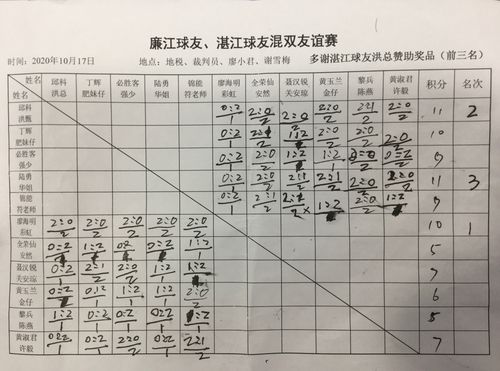 廉江球友、湛江球友混双友谊赛
时间：2020年10月17日 地点：地税、裁判员、廖小君、谢雪梅 多谢湛江球友洪总赞助奖品（前三名）
姓名 邱科 丁辉 必胜客 陆勇 锦能 廖海明 全荣仙 聂汉锐 黄玉兰 黎兵 黄淑君 积分 名次
姓名 洪总 肥妹仔 强少 华姐 符老师 彩虹 安然 关安琼 金仔 陈燕 许毅
邱科 0:2 2:0 2:0 2:0 2:1 2:0 11 2
洪甄 1 2 2 2 2 2
丁辉 0:2 1:2 2:0 2:0 2:0 10
肥妹仔 1 2 2 2
必胜客 0:2 2:0 1:2 1:2 2:0 9
强少 1 2 1 2
陆勇 0:2 2:0 2:1 2:1 2:0 2:0 11 3
华姐 1 2 2 2 2 2
锦能 0:2 2:1 1:2 2:0 1:2 9
符老师 1 2 2
廖海明 2:0 2:0 2:0 2:0 2:0 10 1
彩虹 2 2 2 2 2
全荣仙 0:2 1:2 0:2 0:2 1:2 5
安然 1
聂汉锐 0:2 2:1 2:0 1:2 1:2 7
关安琼 1 2 2 1 1
黄玉兰 0:2 0:2 1:2 1:2 2:0 6
金仔 1 1 1 2
黎兵 1:2 0:2 0:2 0:2 5
陈燕 1 1 1 1 1
黄淑君 0:2 0:2 2:0 0:2 2:1 7
许毅 1 1 2 1 2